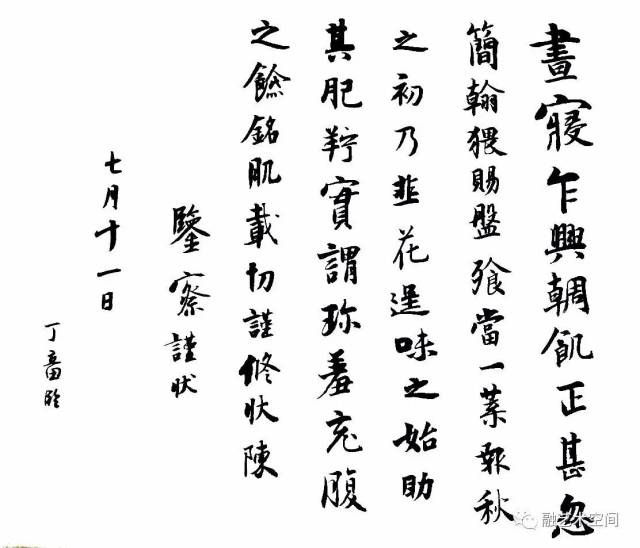 晝寢乍興輖飢正甚忽
簡翰猥賜盤飧當一葉報秋
之初乃韭花逞味之始助
其肥羜實謂珍羞充腹
之餘銘肌載切謹修狀陳
鑒察謹狀
七月十一日
丁
融艺术空间